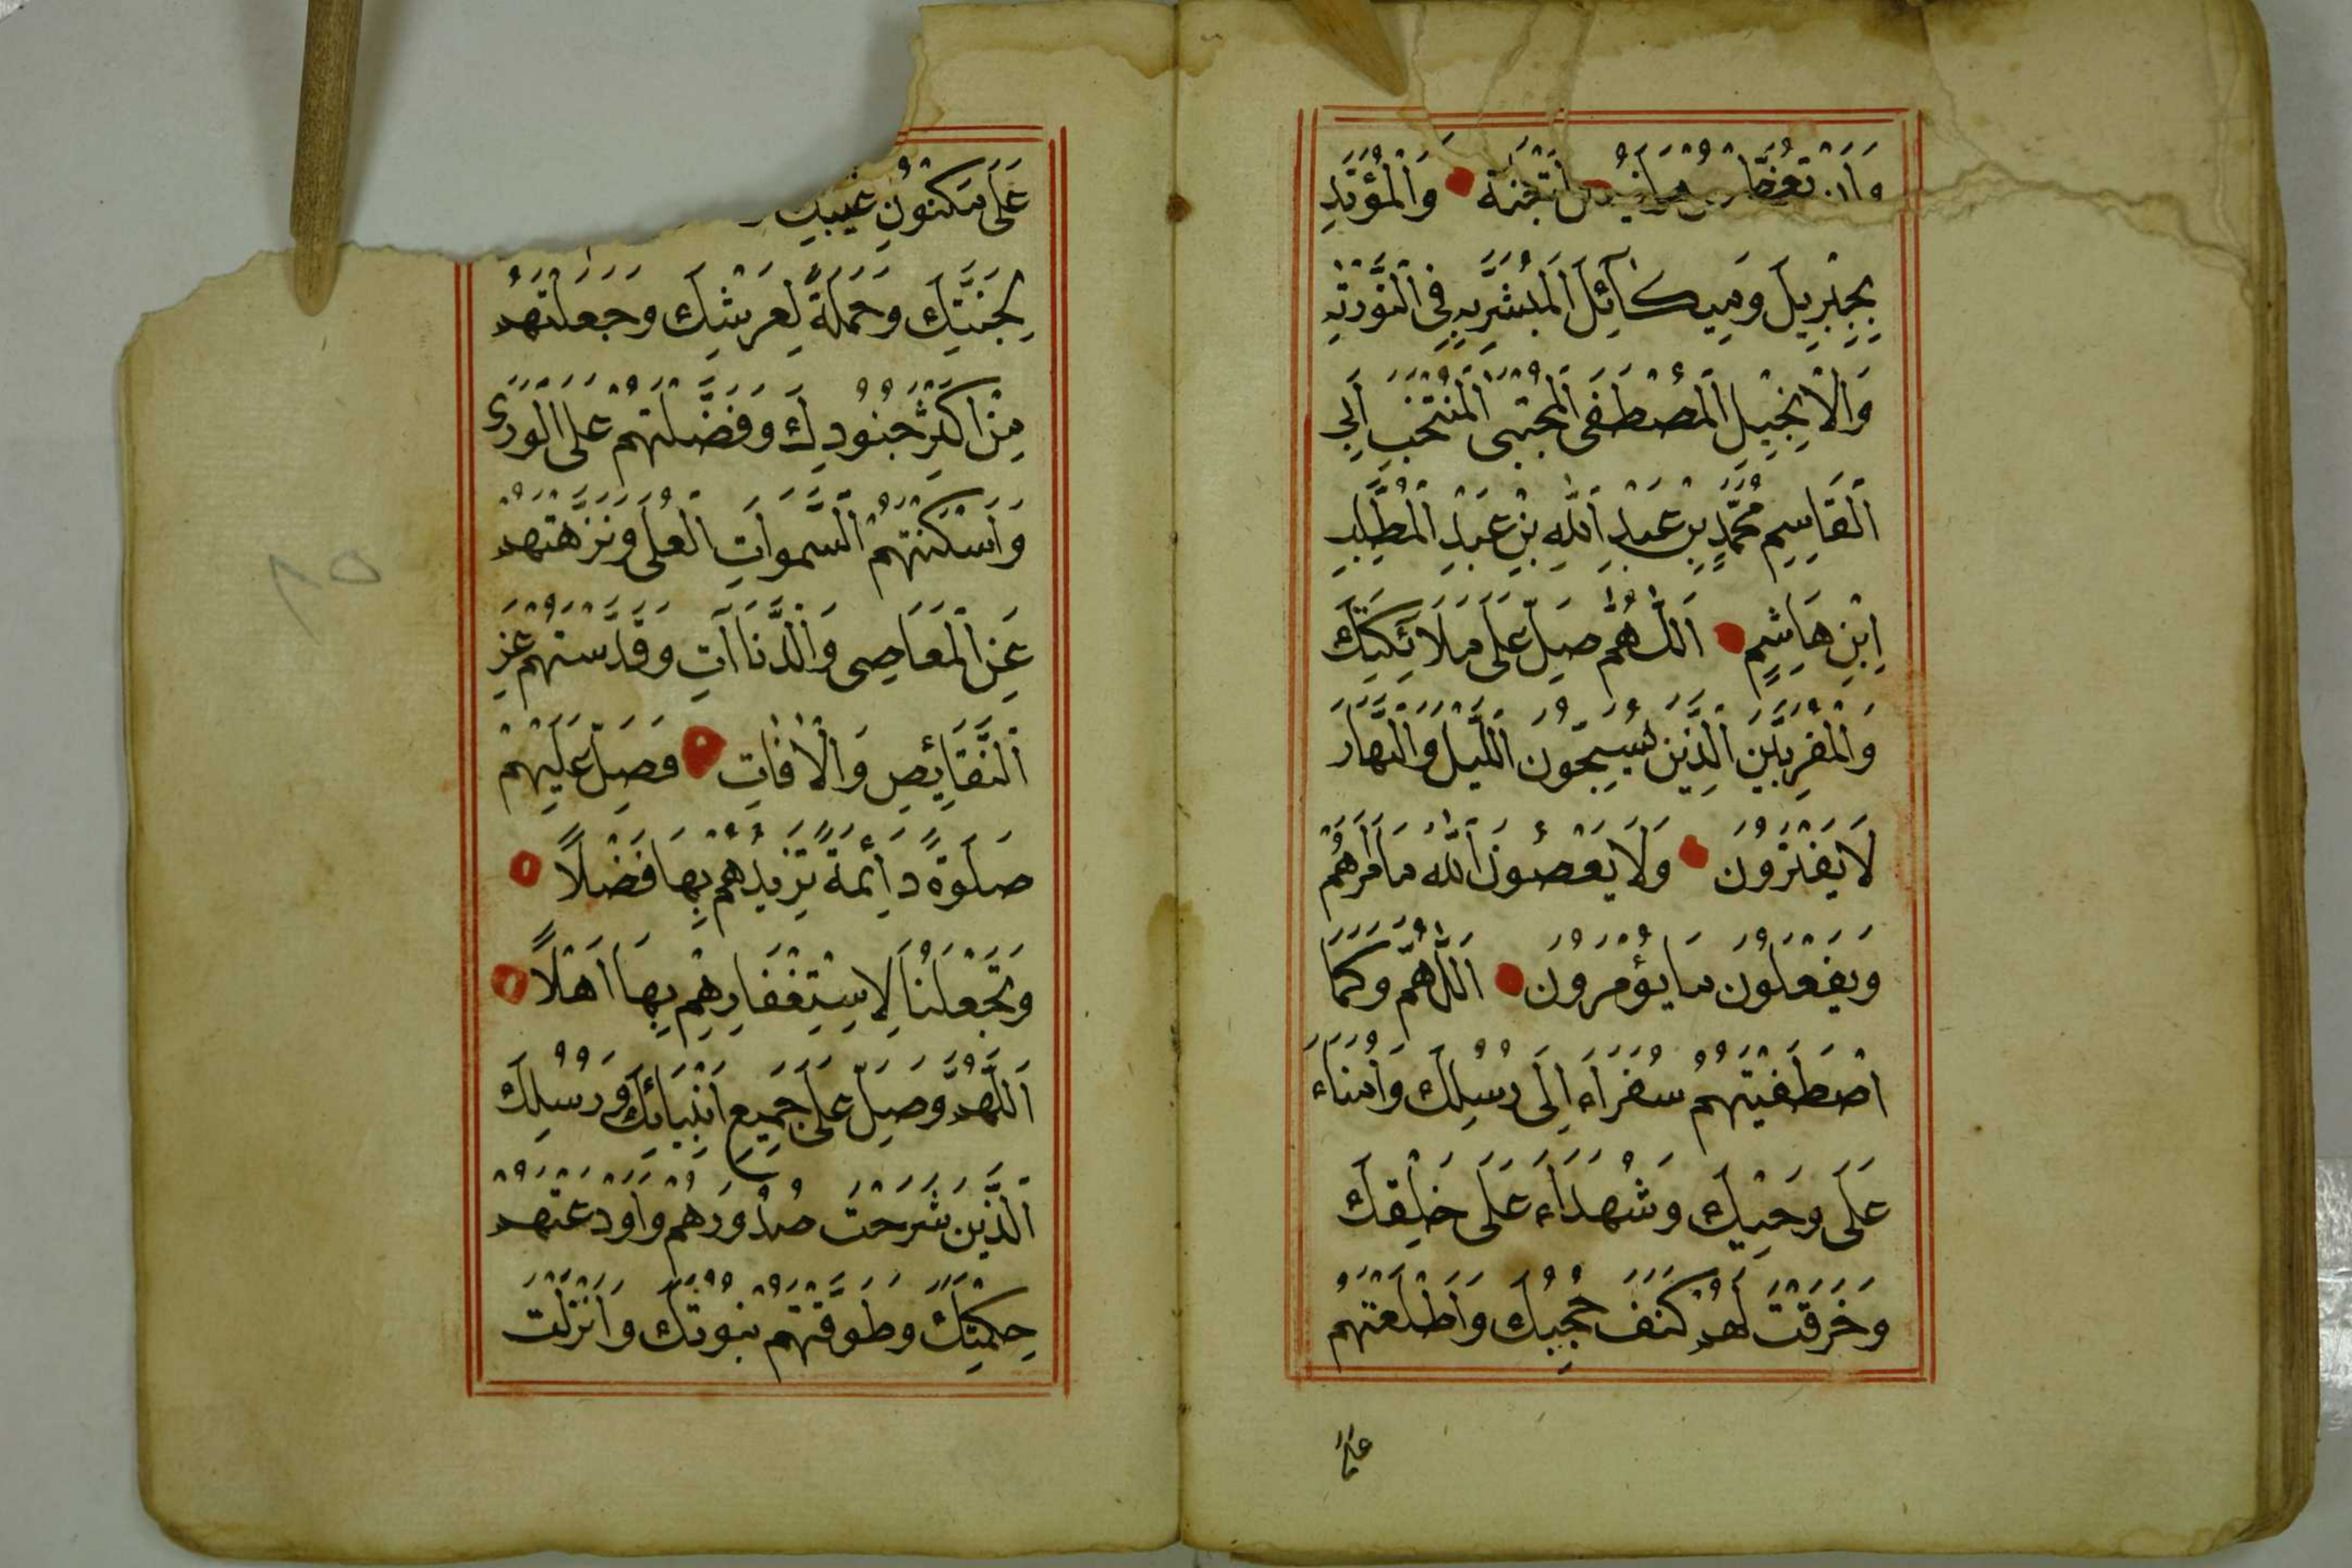 وَالْمُؤَيَّدِ
بِجِبْرِيلَ وَمِيكَآئِلَ اَلْمُبَشَّرِبِهِ فِى اَلتَّوْرٰيةِ
وَالْاِنْجِيْلِ اَلْمُصْطَفَى اَلْمُجْتَبَى اَلْمُنْتَخَبِ اَبِى
اَلْقَاسِمِ مُحَمَّدٍ بْنِ عَبْدِ اَللّٰهِ بْنِ عَبْدِ اَلْمُطَّلِبِ
اِبْنِ هَاشِمٍ اَللّٰهُمَّ صَلِّ عَلَى مَلَائِكَتِكَ
وَالْمُقَرَّبِيْنَ اَلَّذِيْنَ يُسَبِّحُوْنَ اَللَّيْلَ وَالنَّهَارَ
لَا يَفْتَرُوْنَ وَلَا يَعْصُوْنَ اَللّٰهَ مَا اَمَرَهُمْ
وَيَفْعَلُوْنَ مَا يُؤْمَرُوْنَ اَللّٰهُمَّ وَكَمَا
اصْطَفَيْتَهُمْ سُفَرَاءَ اِلَى رُسُلِكَ وَاُمَنَاءَ
عَلَى وَحْيِكَ وَشُهَدَاءَ عَلَى خَلْقِكَ
وَخَرَقْتَ لَهُمْ كَنَفَ حُجُبِكَ وَاَطْلَعْتَهُمْ
على
عَلَى مَكْنُوْنِ غَيْبِكَ
لِجَنَّتِكَ وَحَمَلَةً لِعَرْشِكَ وَجَعَلْتَهُمْ
مِنْ اَكْثَرِ جُنُوْدِكَ وَفَضَّلْتَهُمْ عَلَى الْوَرَى
وَاَسْكَنْتَهُمُ اَلسَّمٰوَاتِ الْعُلَى وَنَزَّهْتَهُمْ
عَنِ اَلْمَعَاصِى وَالدَّنَاآتِ وَقَدَّسْتَهُمْ عَنِ
اَلنَّقَايِصِ وَالْاٰفَاتِ فَصَلِّ عَلَيْهِمْ
صَلٰوةً دَائِمَةً تَزِيْدُهُمْ بِهَا فَضْلًا
وَتَجْعَلُنَا لِاسْتِغْفَارِهِمْ بِهَا اَهْلًا
اَللّٰهُمَّ وَصَلِّ عَلَى جَمِيْعِ اَنْبِيَائِكَ وَرُسُلِكَ
اَلَّذِيْنَ شَرَحْتَ صُدُوْرَهُمْ وَاَوْدَعْتَهُمْ
حِكْمَتَكَ وَطَوَّقْتَهُمْ نُبُوَّتَكَ وَاَنْزَلْتَ